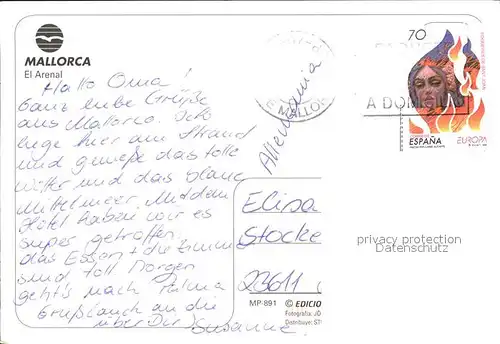 MALLORCA
El Arenal
Hallo Oma!
Ganz liebe Grüße
aus Mallorca. Ich
liege hier am Strand
und genieße das tolle
Wetter und das blaue
Mittelmeer. Mit dem
Hotel haben wir es
super getroffen,
das Essen + die Zimmer
sind toll. Morgen
geht's nach Palma
Gruß auch an die
über Dir! Susanne
Allemania
70
A DOMICILIO
ESPAÑA
EUROPA
Elisa
Stocke
23611
privacy protection
Datenschutz
MP-891 © EDICIO
Fotografía: JO
Distribuye: ST